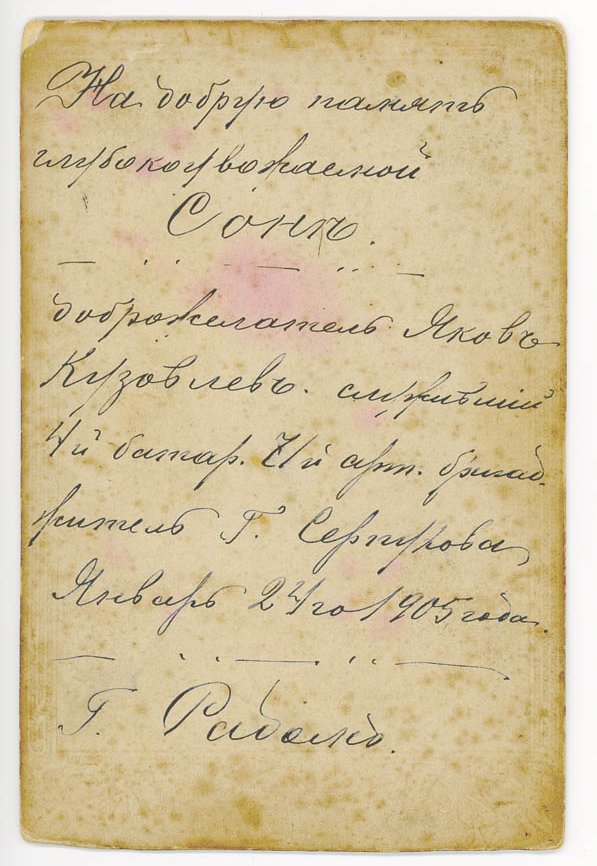 На добрую память
глубокоуважаемой
Сонѣ.
доброжелатель Яковъ
Кузовлевъ. служивший
4й батар. 71й арт. бригад.
житель Г. Серпухова
Январь 24го 1905 года.
Г.